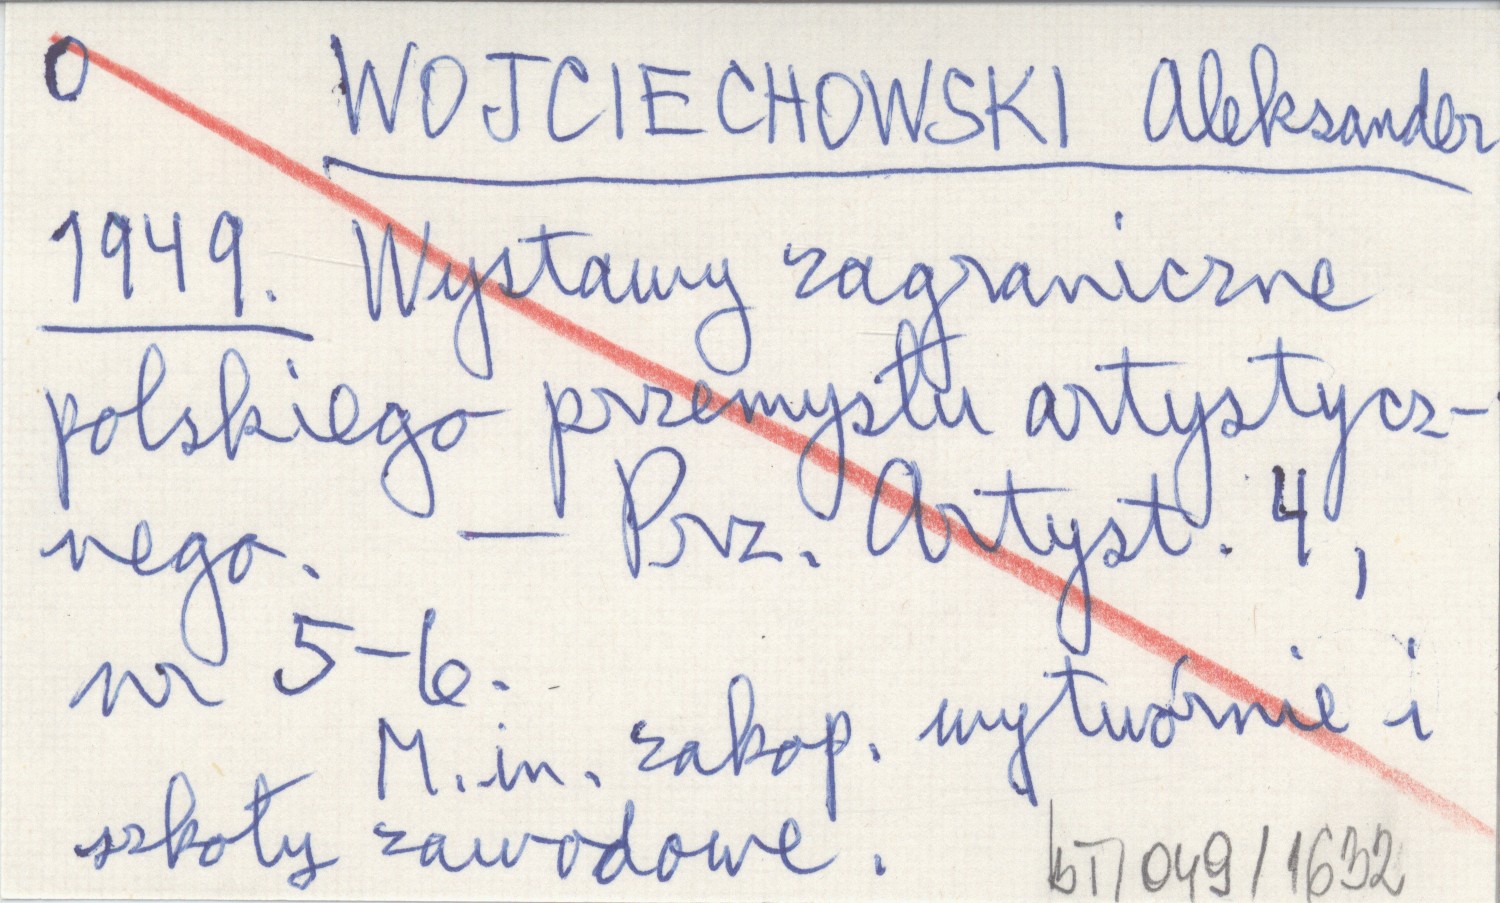 O WOJCIECHOWSKI Aleksander
1949. Wystawy zagraniczne
polskiego przemysłu artystycz-
nego. — Prz. Artyst. 4,
nr 5-6.
M. in. zakop. wytwórnie i
szkoły zawodowe.
bT/049/1632